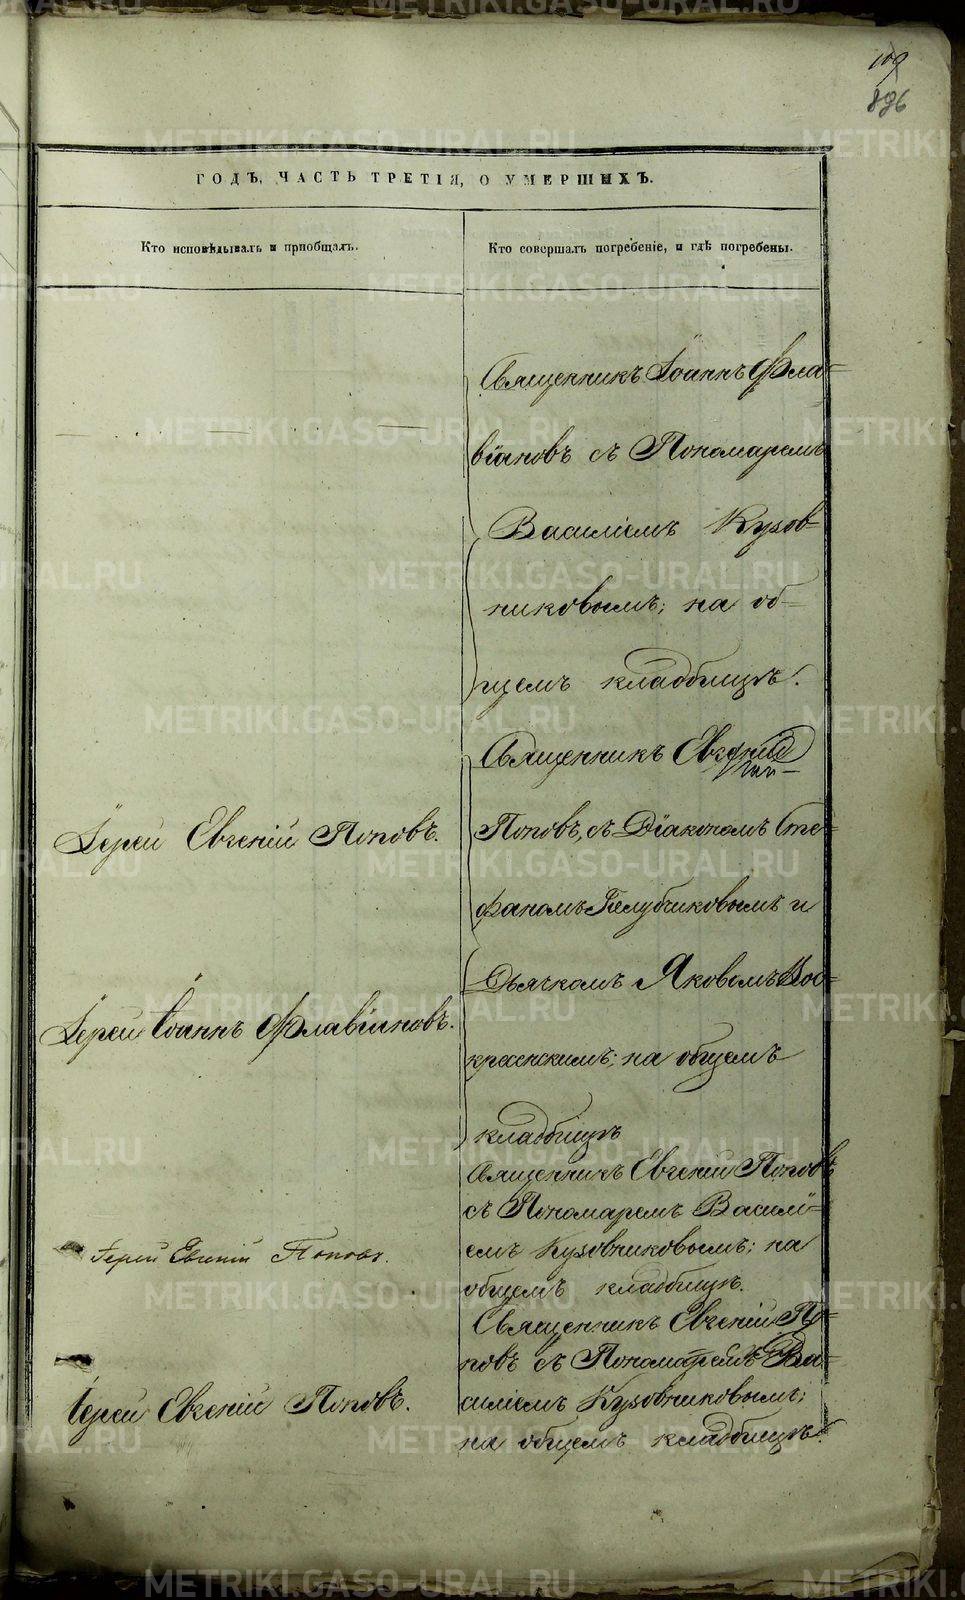 109
896
ГОДЪ, ЧАСТЬ ТРЕТІЯ, О УМЕРШИХЪ.
Кто исповѣдывалъ и пріобщалъ.
Кто совершалъ погребеніе, и гдѣ погребены.
Священникъ Іоаннъ Фла-
віановъ съ Пономаремъ
Василіемъ Кузов-
никовымъ; на об-
щемъ кладбищѣ.
Священникъ Евгеній
Поповъ, съ Діакономъ Сте-
фаномъ Голубчиковымъ и
Дьячкомъ Яковомъ Вос-
кресенскимъ; на общемъ
кладбищѣ
Іерей Евгеній Поповъ.
Іерей Іоаннъ Флавіановъ.
Священникъ Евгеній Поповъ
съ Пономаремъ Василі-
емъ Кузовниковымъ; на
общемъ кладбищѣ.
Іерей Евгеній Поповъ.
Священникъ Евгеній По-
повъ съ Пономаремъ Ва-
силіемъ Кузовниковымъ;
на общемъ кладбищѣ.
Іерей Евгеній Поповъ.
METRIKI.GASO-URAL.RU